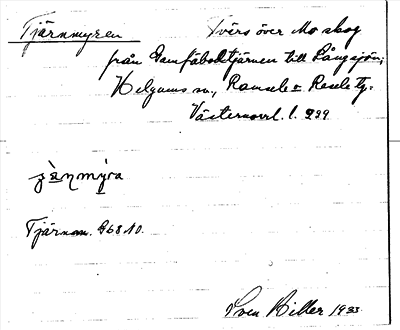 Tjärnmyren
Tvärs över Mo skog
från Gamfäbodtjärnen till Långsjön;
Helgums sn, Ramsele o. Resele tg.
Västernorrl. l. 939
Tjärnm. 968 10.
Sven Biller 1933